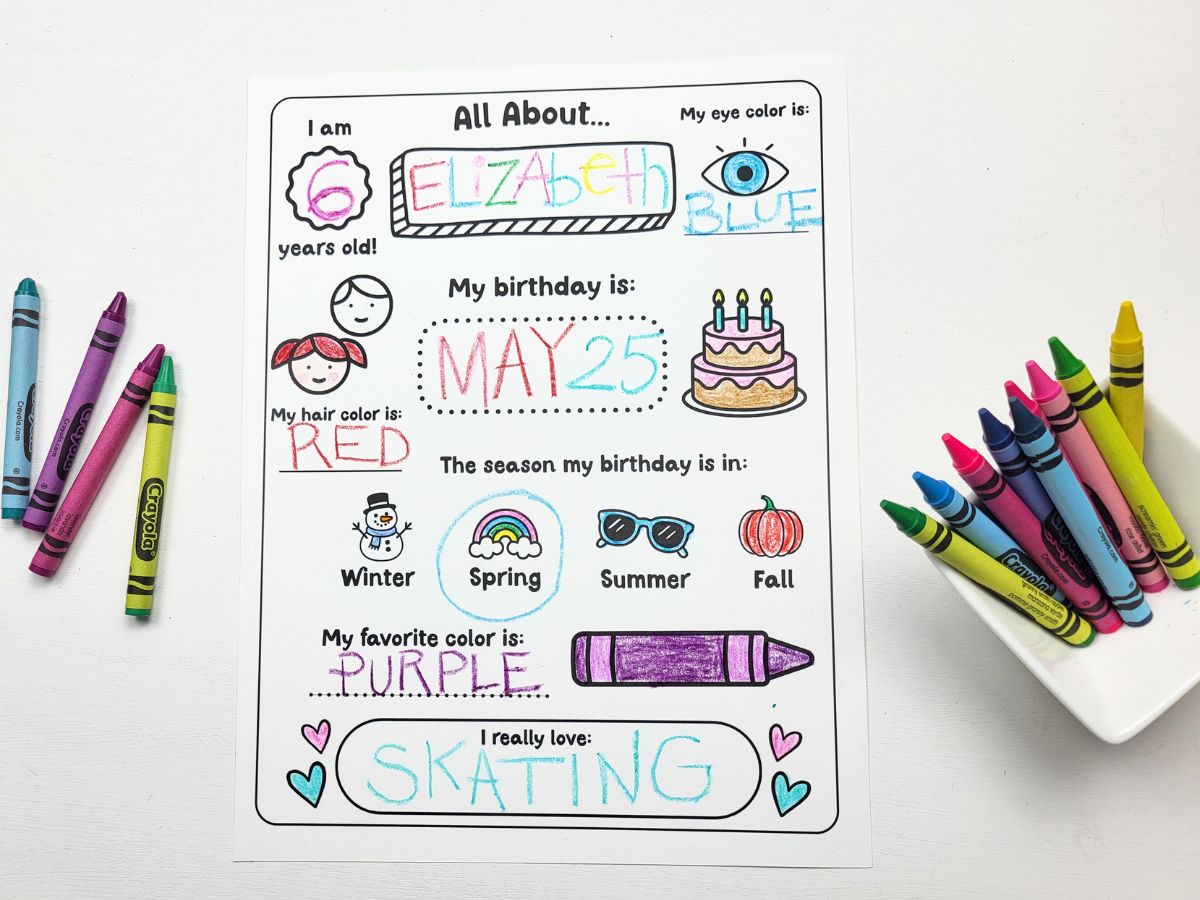 All About...
I am
6
years old!
ELiZAbeth
My eye color is:
BLUE
My birthday is:
MAY 25
My hair color is:
RED
The season my birthday is in:
Winter
Spring
Summer
Fall
My favorite color is:
PURPLE
I really love:
SKATING
Crayola.com
Crayola
Crayola.com
Crayola
Crayola
Crayola
screamin' green